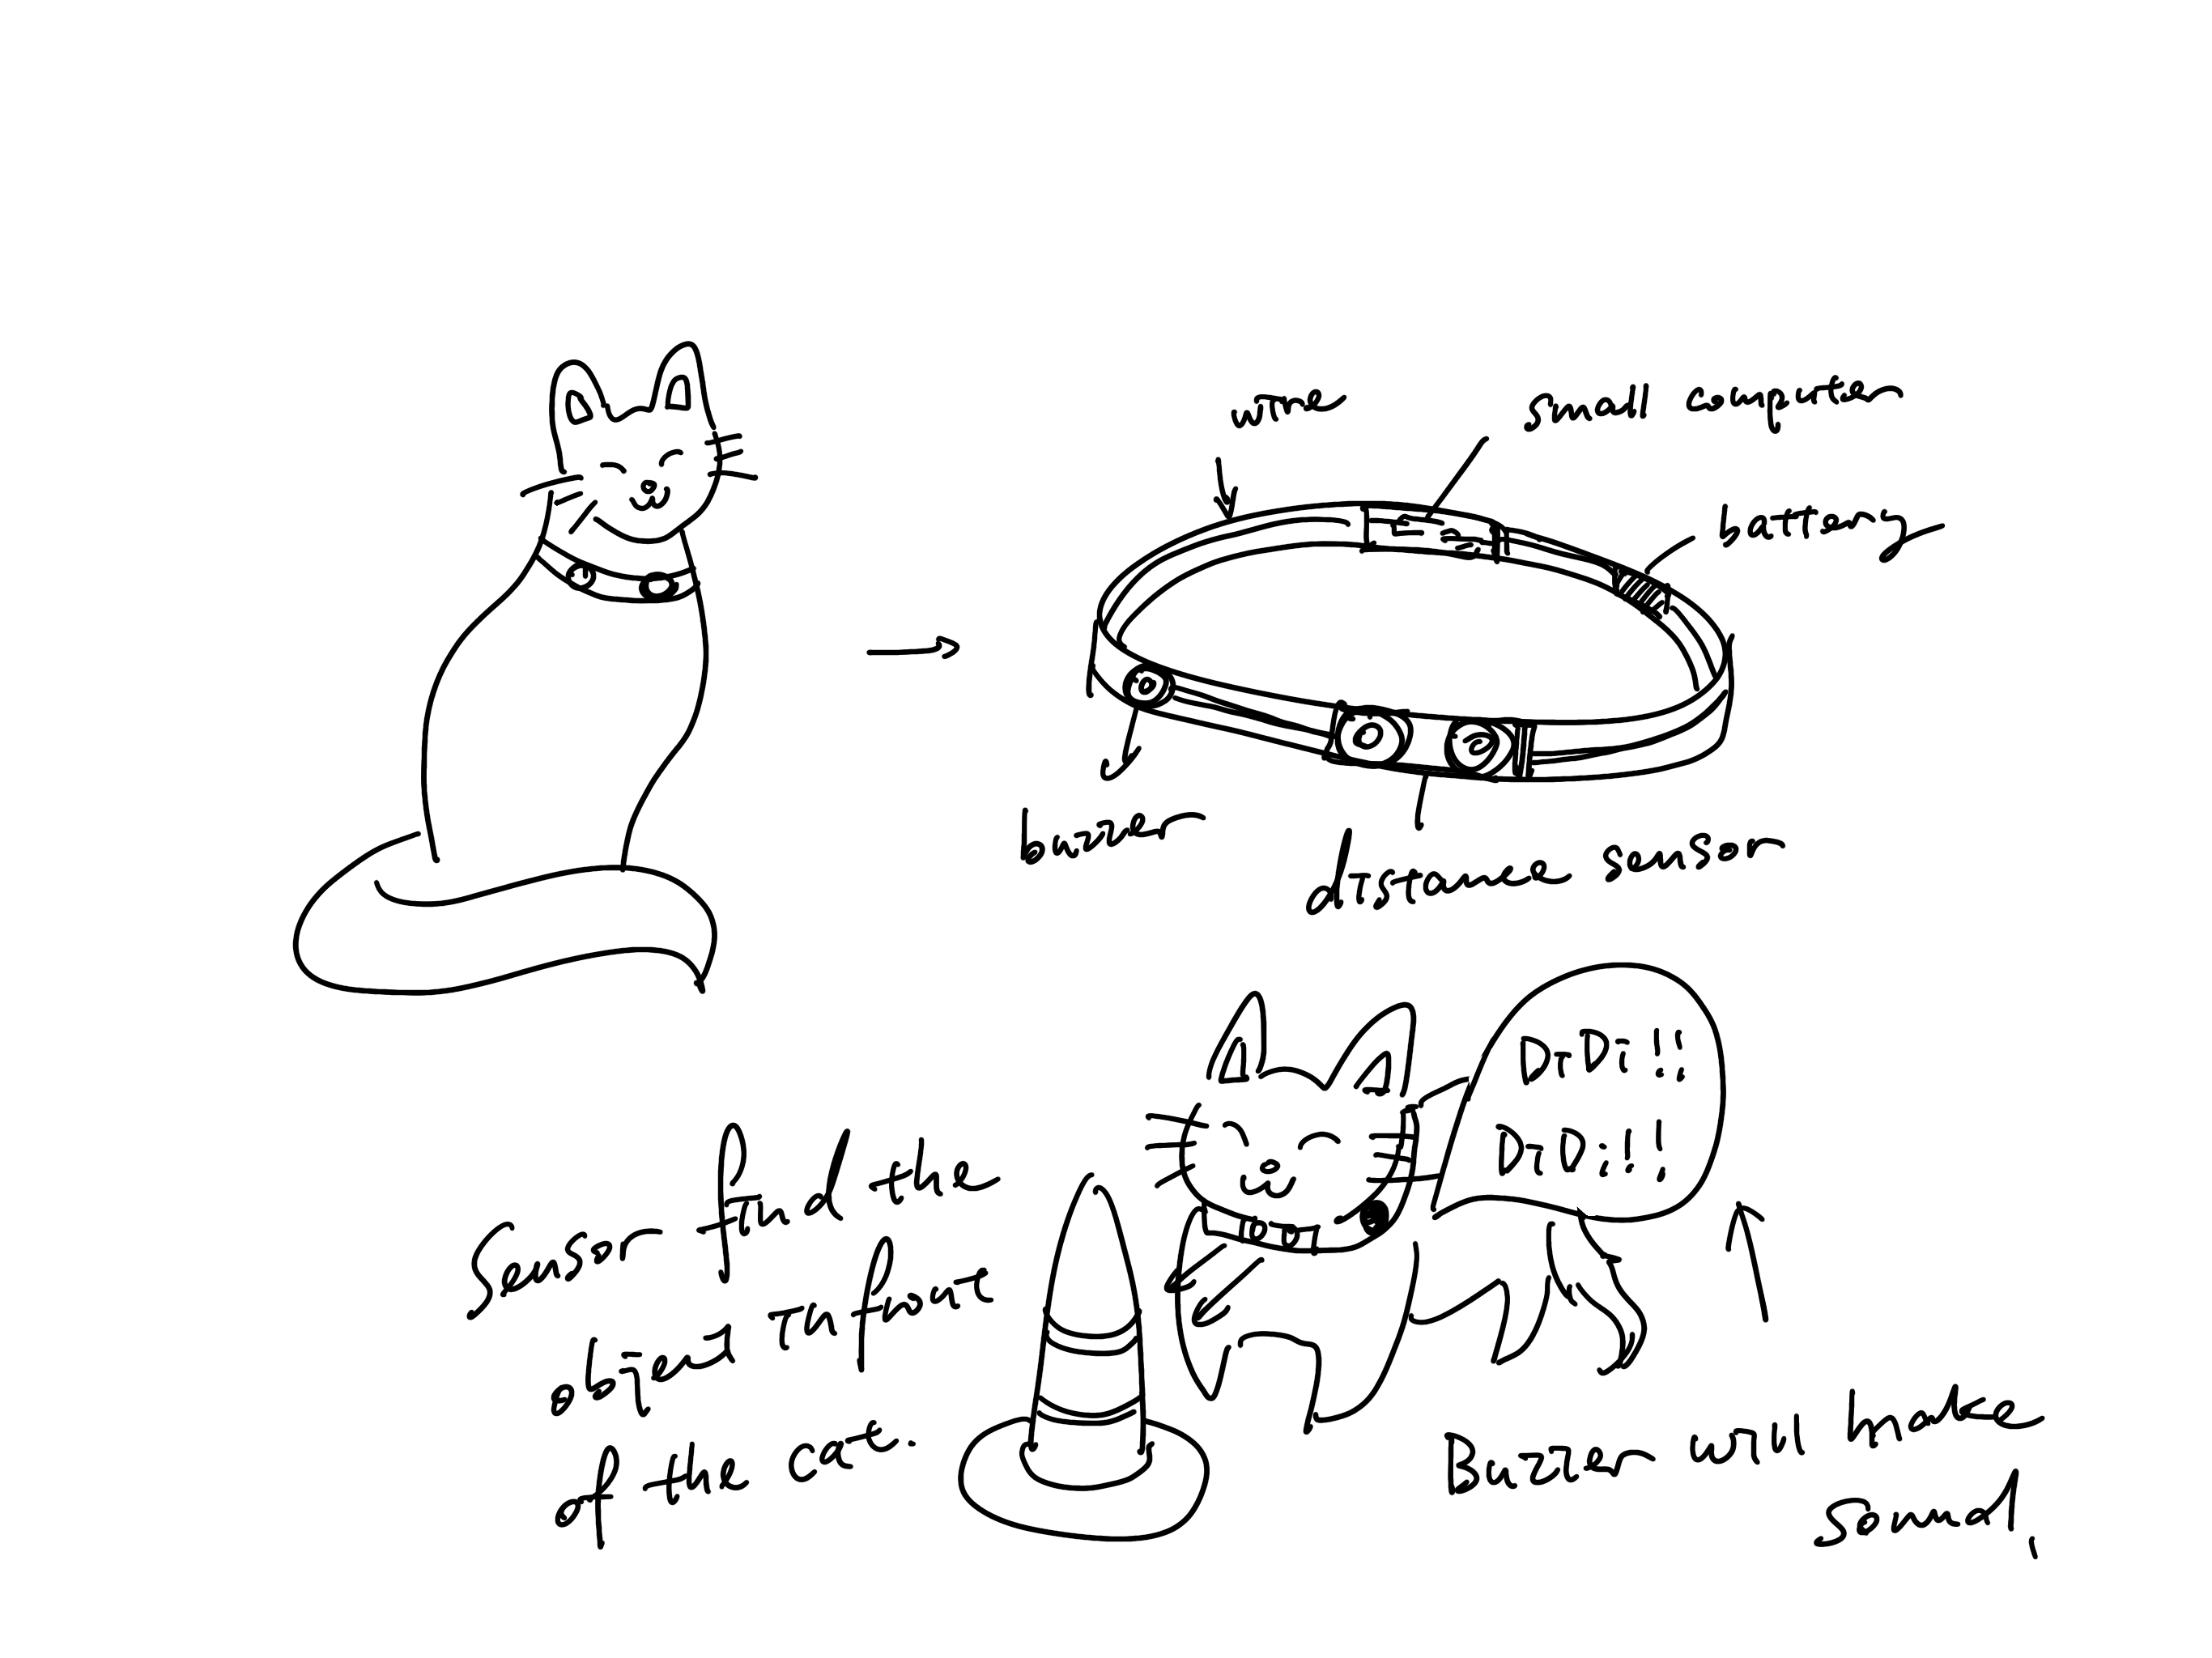 wire
small computer
battery
buzzer
distance sensor
DiDi!!
DiDi!!
Sensor find the
object in front
of the cat.
Buzzer will make
sound.